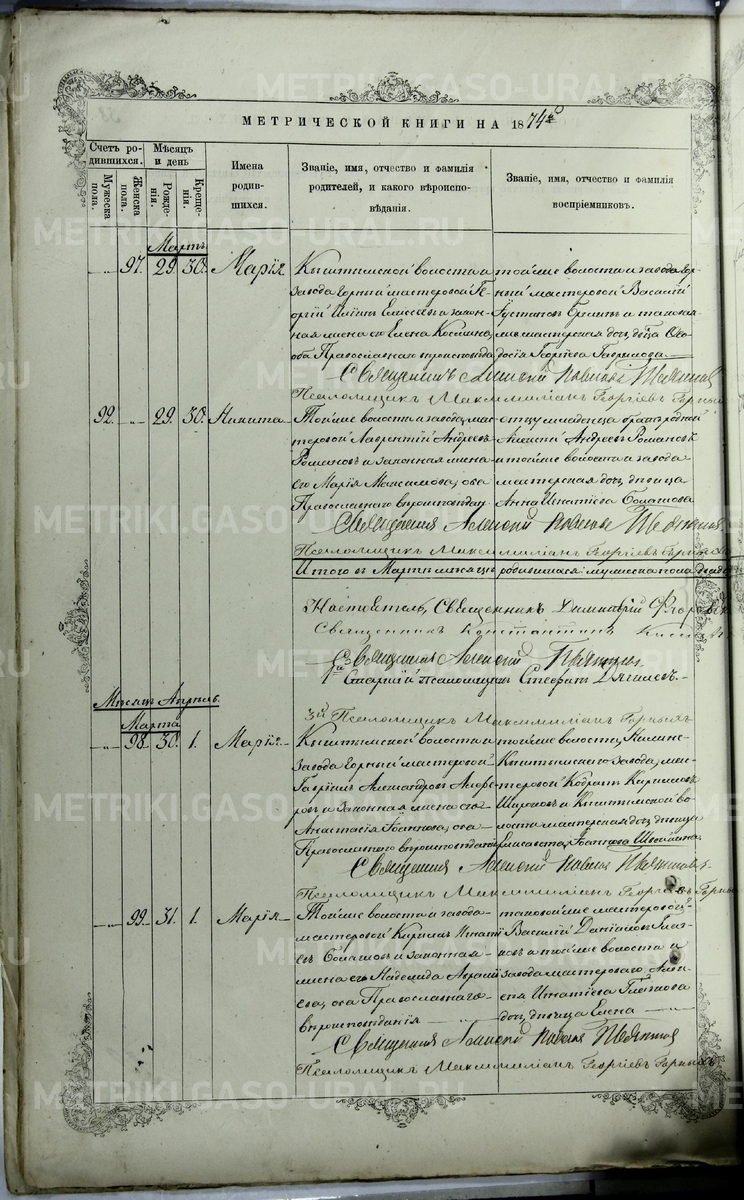 МЕТРИЧЕСКОЙ КНИГИ НА 1874й
Счетъ ро-
дившихся.
Мѣсяцъ
и день
Мужеска
пола.
Женска
пола.
Рожде-
нія.
Креще-
нія.
Имена
родив-
шихся.
Званіе, имя, отчество и фамилія
родителей, и какого вѣроиспо-
вѣданія.
Званіе, имя, отчество и фамилія
воспріемниковъ.
Мартъ.
97. 29. 30. Марія
Кыштымской волости и
завода горный мастеровой Ге-
оргій Елисеевъ и закон-
ная жена его Елена Космина,
оба Православнаго вѣроисповѣда
тойже волости и завода гор-
ный мастеровой Василій
мастерская дочь, дѣвица Ѳео-
досія Георгіева Гаврилова
Священникъ Алексій
Псаломщикъ Максимиліанъ Георгіевъ Горныхъ
92. 29. 30. Никита
Тойже волости и завода мас-
теровой Лаврентій Андреевъ
Романовъ и законная жена
его Марія Максимова, оба
Православнаго вѣроисповѣдан
отцу младенца братъ родной
Алексій Андреевъ Романовъ
и тойже волости и завода
мастерская дочь, дѣвица
Анна Игнатіева
Священникъ Алексій
Псаломщикъ Максимиліанъ Георгіевъ Горныхъ
Итого въ Мартѣ мѣсяцѣ родившихся: мужеска пола
Настоятель, Священникъ Димитрій
Священникъ Константинъ
Священникъ Алексій
Старшій псаломщикъ Стефанъ Дягилевъ.
3й Псаломщикъ Максимиліанъ Горныхъ
Мѣсяцъ Апрѣль.
Марта
98. 30. 1. Марія
Кыштымской волости и
завода горный мастеровой
Гавріилъ Александровъ
и законная жена его
Анастасія Іоаннова, оба
Православнаго вѣроисповѣданія
тойже волости, Нижне-
Кыштымскаго завода, мас-
теровой Кодратъ Кириловъ
Широковъ и Кыштымской во-
лости мастерская дочь, дѣвица
Елисавета Іоаннова
Священникъ Алексій
Псаломщикъ Максимиліанъ Георгіевъ Горныхъ
99. 31. 1. Марія
Тойже волости и завода
мастеровой Кирилъ Игнаті
евъ и законная
жена его Надежда
оба Православнаго
вѣроисповѣданія
таковойже мастеровой
Василій Даніиловъ Глаз-
ковъ и тойже волости и
завода мастероваго Алек-
сѣя Игнатіева Глазкова
дочь, дѣвица Елена
Священникъ Алексій
Псаломщикъ Максимиліанъ Георгіевъ Горныхъ
METRIKI.GASO-URAL.RU